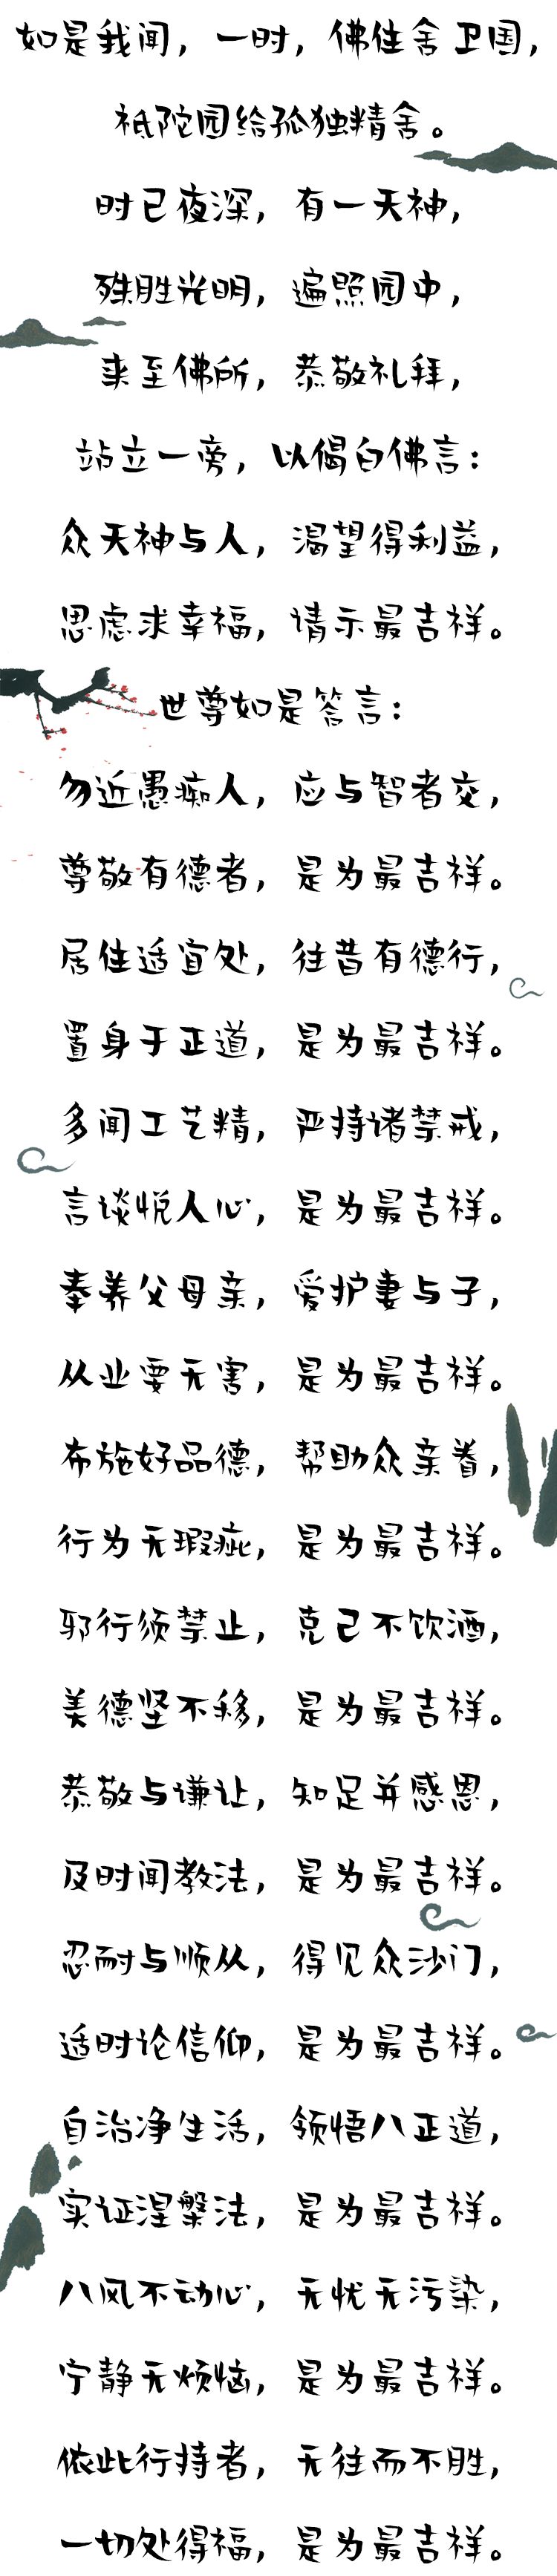 如是我闻，一时，佛住舍卫国，
祇陀园给孤独精舍。
时已夜深，有一天神，
殊胜光明，遍照园中，
来至佛所，恭敬礼拜，
站立一旁，以偈白佛言：
众天神与人，渴望得利益，
思虑求幸福，请示最吉祥。
世尊如是答言：
勿近愚痴人，应与智者交，
尊敬有德者，是为最吉祥。
居住适宜处，往昔有德行，
置身于正道，是为最吉祥。
多闻工艺精，严持诸禁戒，
言谈悦人心，是为最吉祥。
奉养父母亲，爱护妻与子，
从业要无害，是为最吉祥。
布施好品德，帮助众亲眷，
行为无瑕疵，是为最吉祥。
邪行须禁止，克己不饮酒，
美德坚不移，是为最吉祥。
恭敬与谦让，知足并感恩，
及时闻教法，是为最吉祥。
忍耐与顺从，得见众沙门，
适时论信仰，是为最吉祥。
自治净生活，领悟八正道，
实证涅槃法，是为最吉祥。
八风不动心，无忧无污染，
宁静无烦恼，是为最吉祥。
依此行持者，无往而不胜，
一切处得福，是为最吉祥。